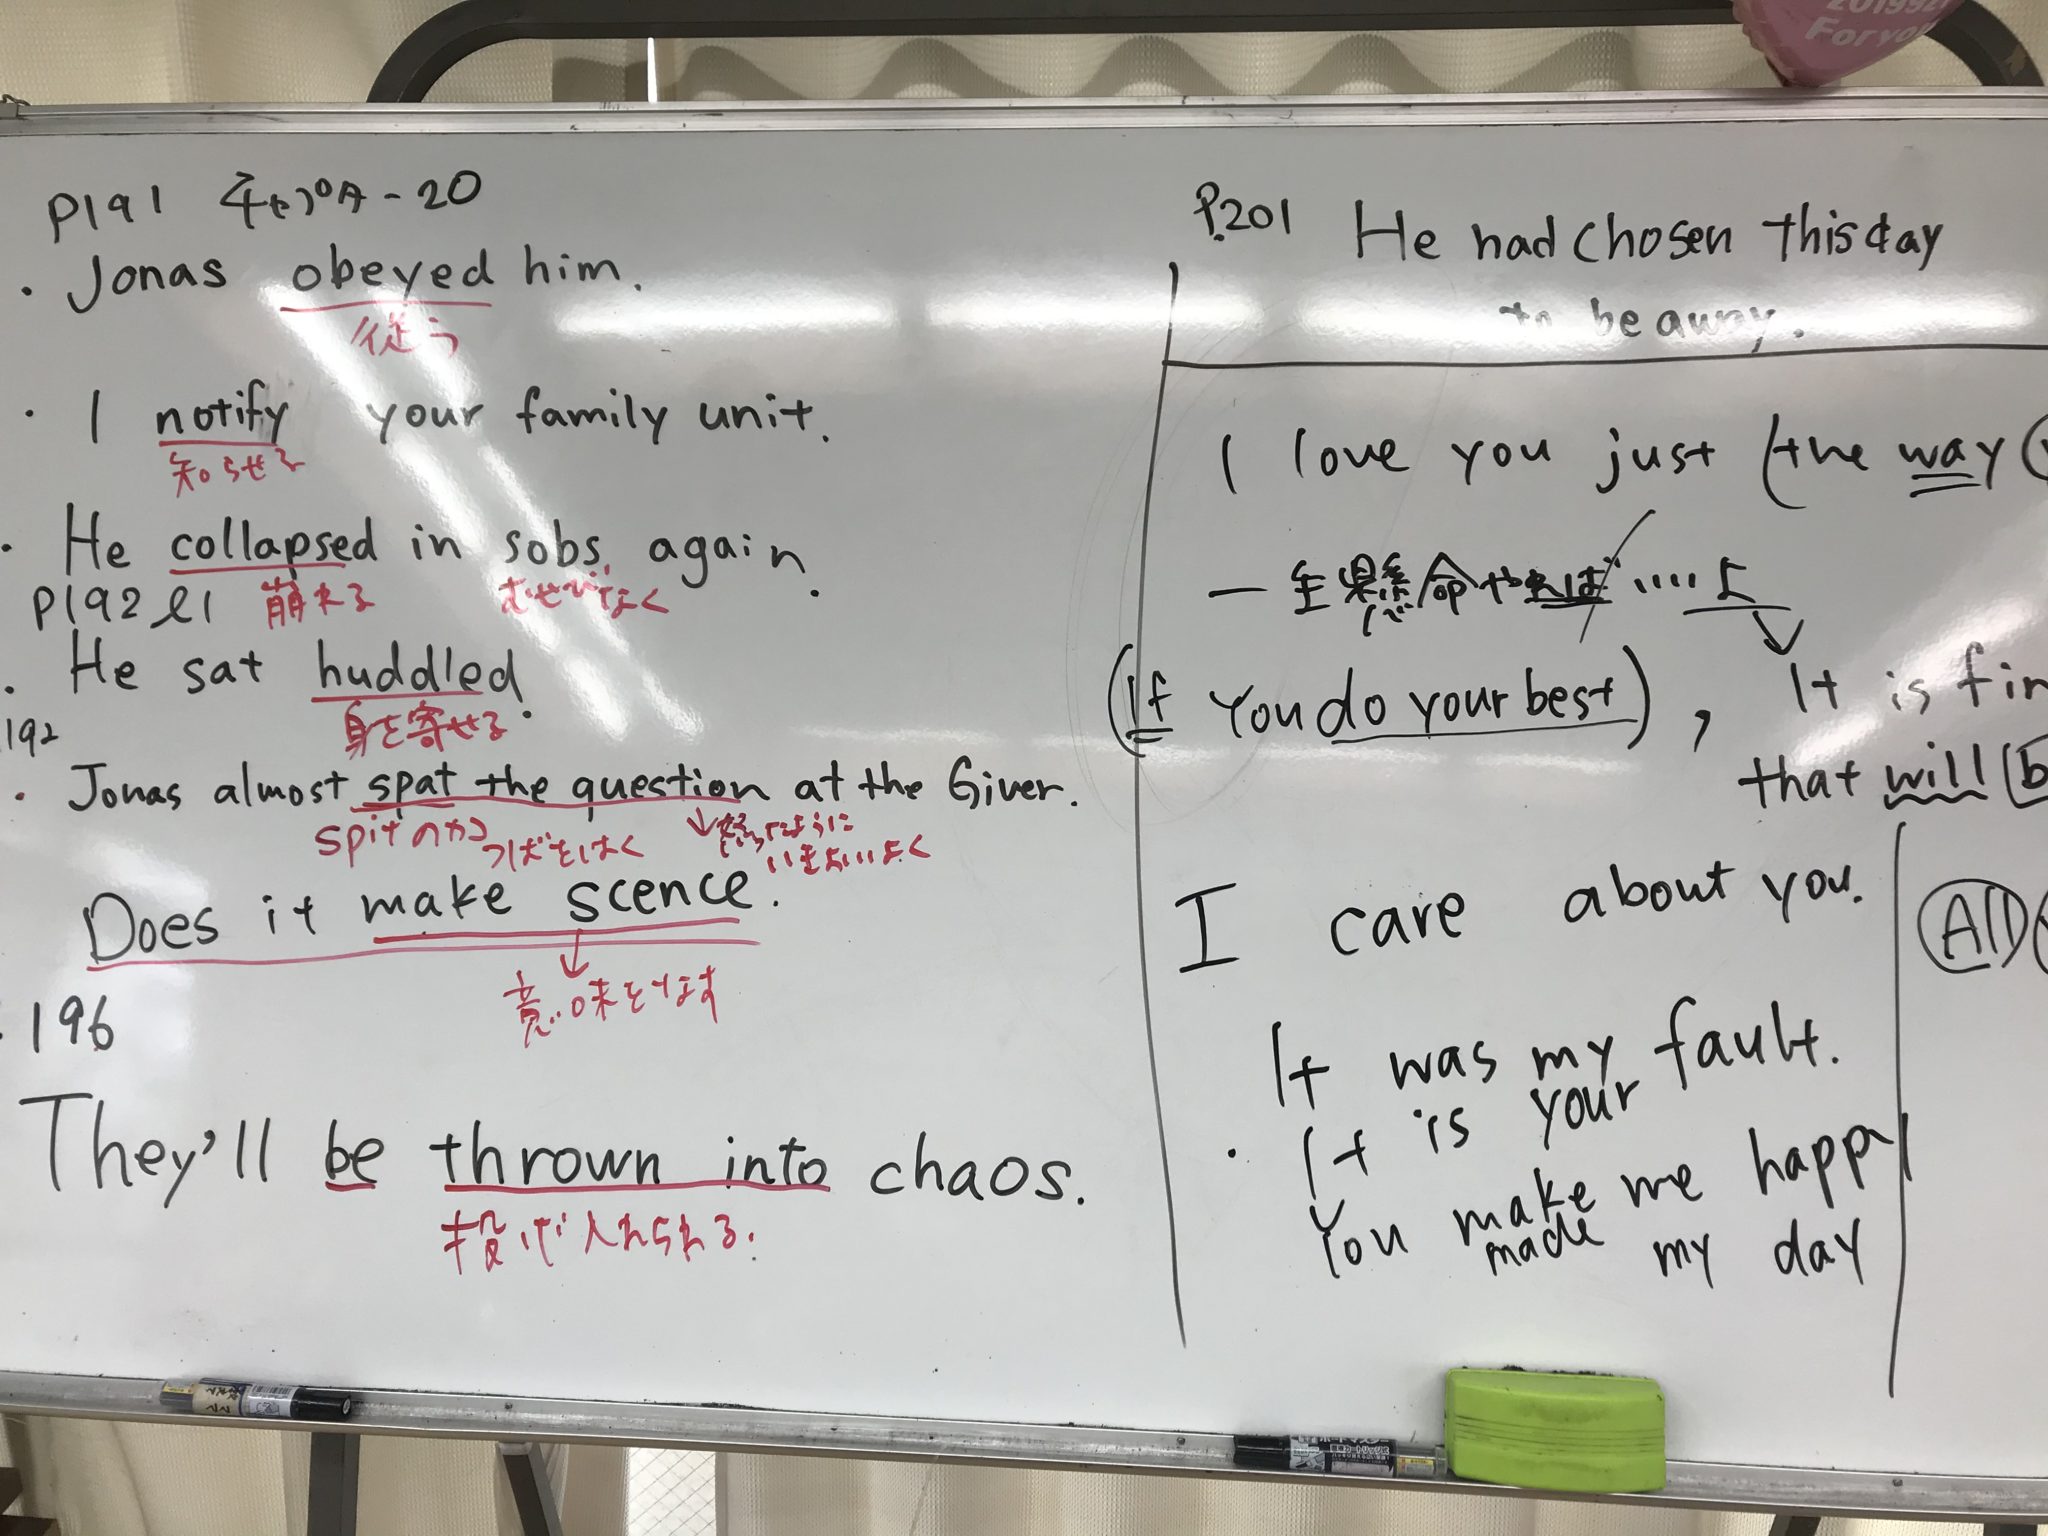 P191
・Jonas obeyed him.
従う
・I notify your family unit.
知らせる
・He collapsed in sobs, again.
P192 ℓ1 崩れる むせびなく
・He sat huddled.
身を寄せる
192
・Jonas almost spat the question at the Giver.
spitのカコ つばをはく ↓怒ったように
いきよいよく
Does it make scence.
↓
意味をなす
・196
They'll be thrown into chaos.
投げ入れられる.
P.201 He had chosen this day
to be away.
I love you just (the way
一生懸命やれば‥‥よ
(If You do your best), It is fin
that will (b
I care about you.
It was my fault.
・It is your
You make me happy
made my day
All
201992
For you